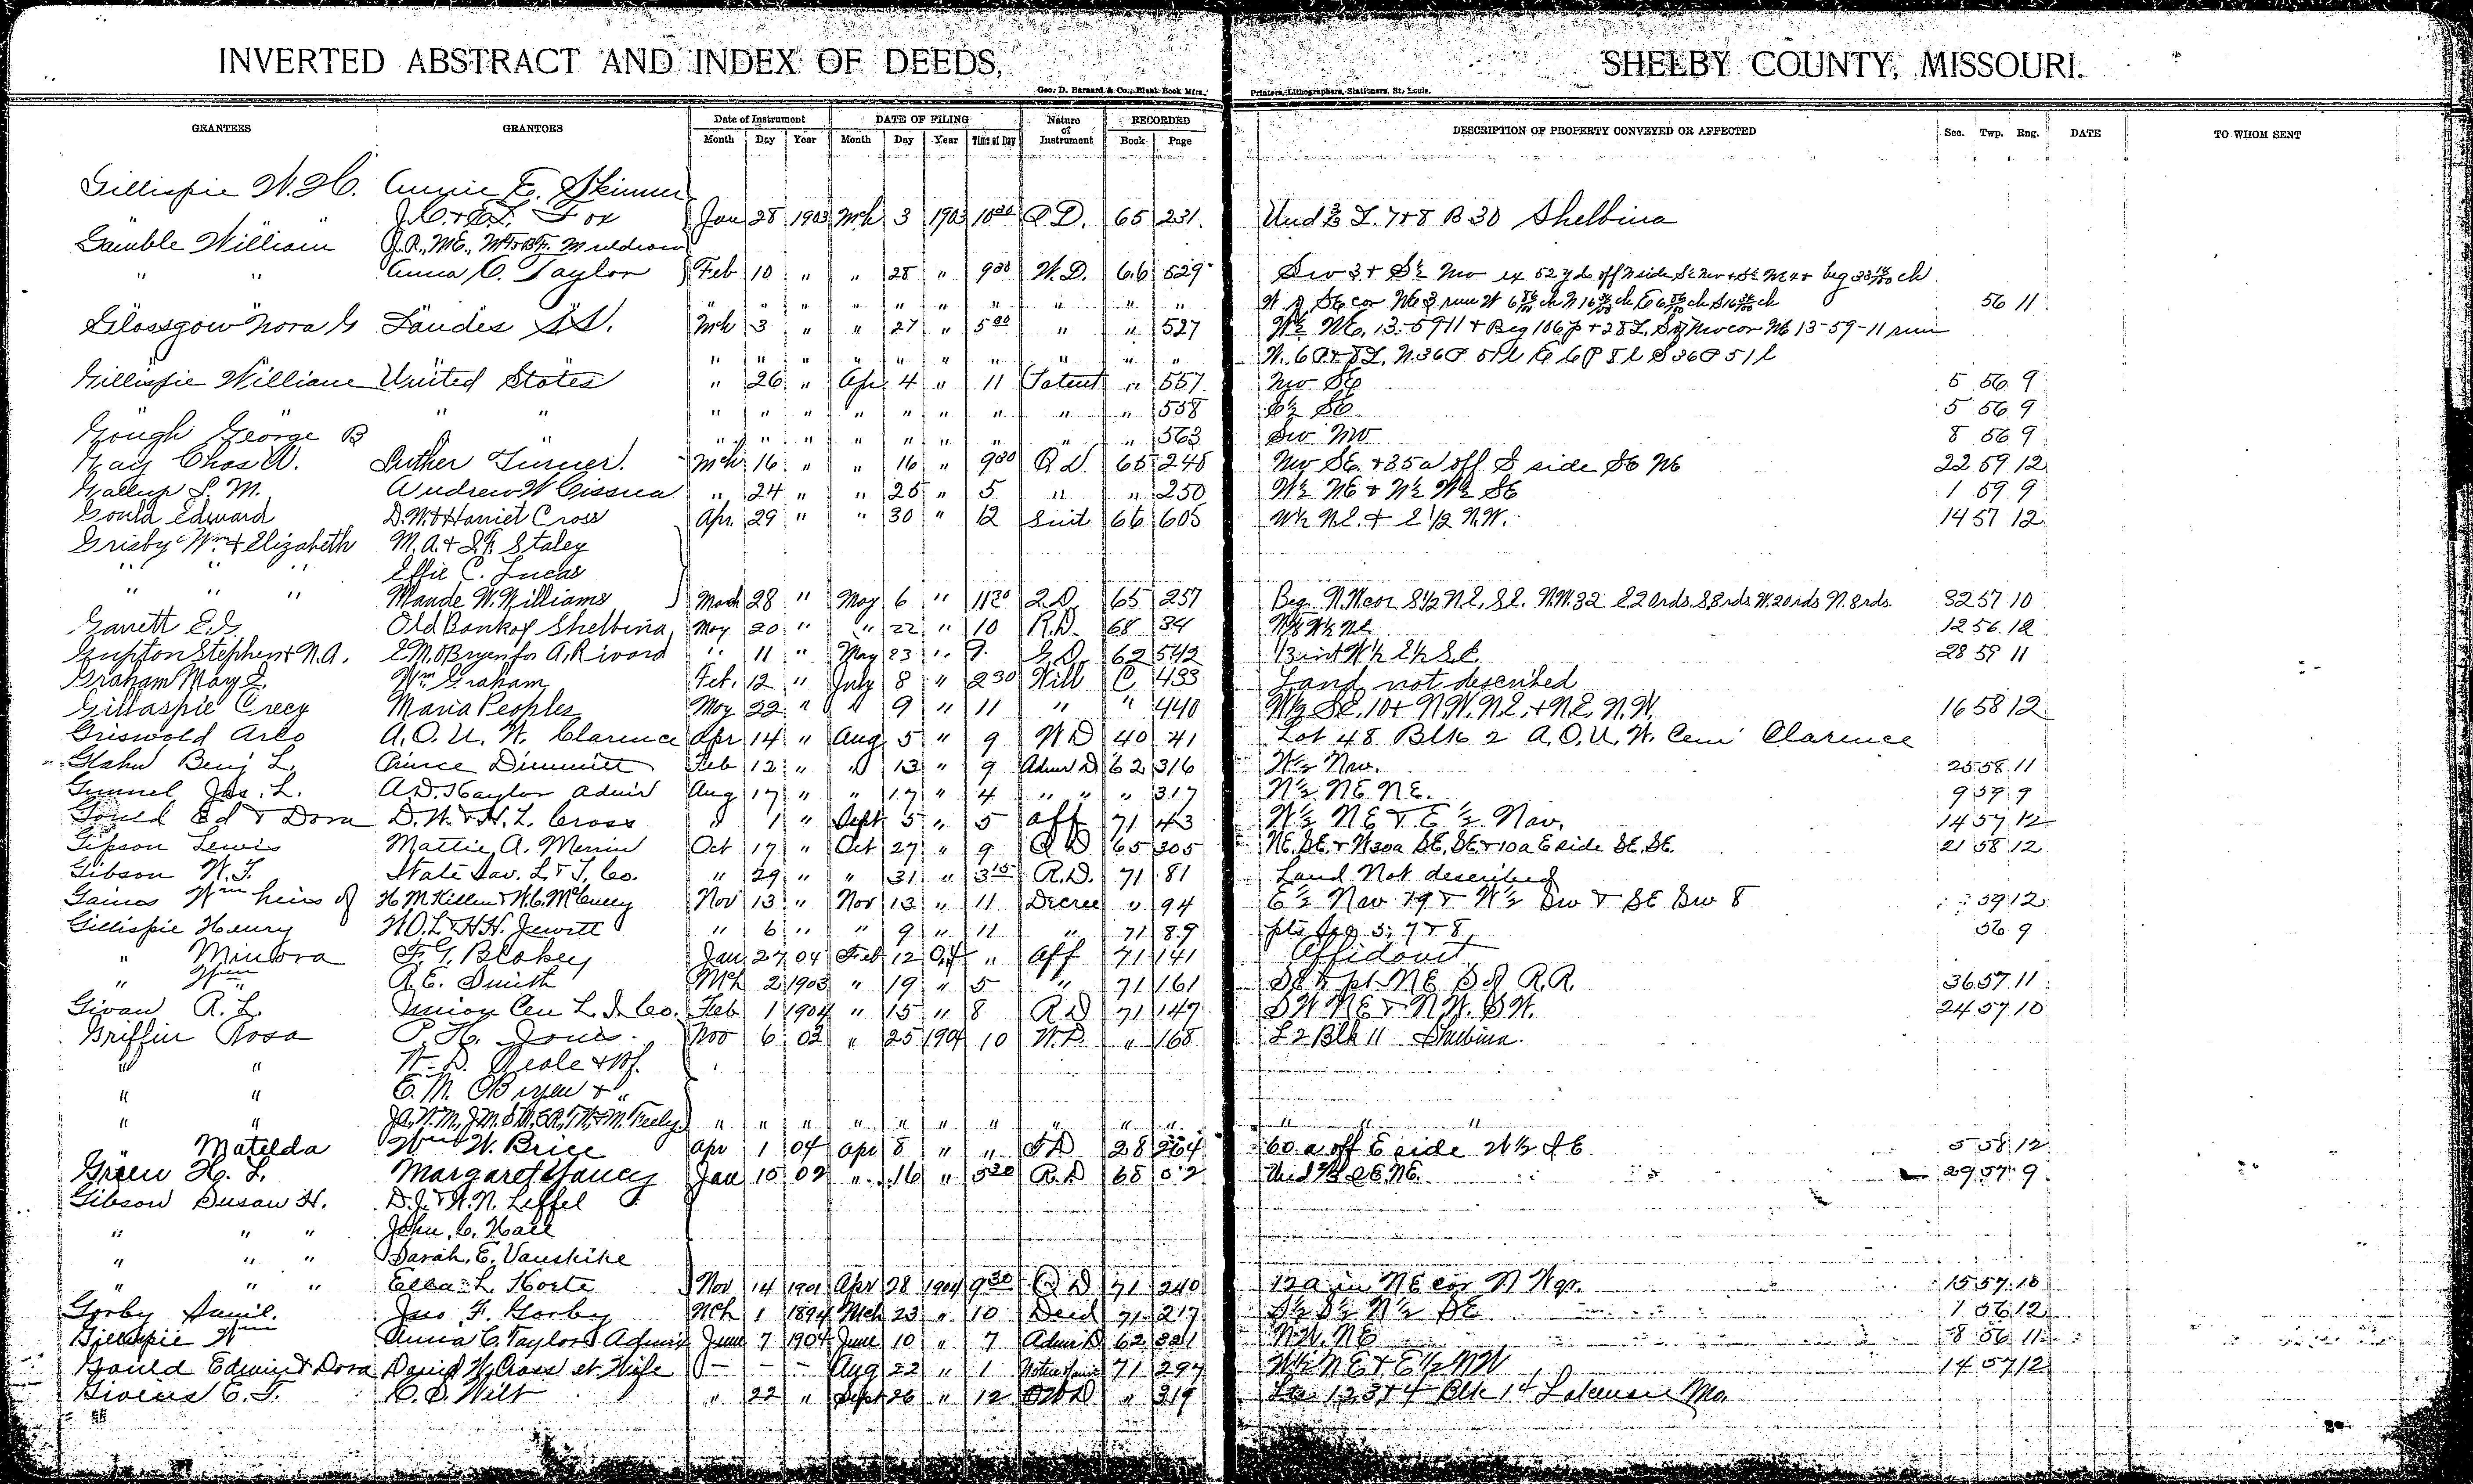 INVERTED ABSTRACT AND INDEX OF DEEDS, SHELBY COUNTY, MISSOURI.
Geo. D. Barnard & Co., Blank Book Mfrs. Printers, Lithographers, Stationers, St. Louis.
GRANTEES GRANTORS Date of Instrument DATE OF FILING Nature of Instrument RECORDED DESCRIPTION OF PROPERTY CONVEYED OR AFFECTED Sec. Twp. Rng. DATE TO WHOM SENT
Month Day Year Month Day Year Time of Day Book Page
Gillispie W. H. Annie E. Skinner
J.C. & E.L. Fox Jan 28 1903 Mch 3 1903 10 30 Q D. 65 231 Und 2/3 L. 7 & 8 B 30 Shelbina
Gamble William Muldrow
" " Anna C. Taylor Feb 10 " " 28 " 9 30 W. D. 66 529
" " " " " " " " " " 56 11
Glassgow Nora G Landes Mch 3 " " 27 " 5 00 " " 527 W½ NE, 13-59-11 + Beg 106 p + 28 L. S of NW cor NE 13-59-11 run
" " " " " " " " " " W. 6 P. + 8 L. N. 36 P 51 l E 6 P 8 l S 36 P 51 l
Gillispie William United States " 26 " Apr 4 " 11 Patent " 557 NW SE 5 56 9
" " " " " " " " " " " " " 558 E½ SE 5 56 9
Gough George B " " " " " " " " " " " 563 SW NW 8 56 9
Gay Chas W. Luther Turner. Mch 16 " " 16 " 9 30 Q D 65 245 NW SE + 35 a off S side SE NE 22 59 12
Gallup L. M. Andrew W Cissna " 24 " " 25 " 5 " " 250 W½ NE & N½ W½ SE 1 59 9
Gould Edward D. W. & Harriet Cross Apr. 29 " " 30 " 12 Suit 66 605 W½ N.E. + E 1/2 N.W. 14 57 12
Grisby Wm & Elizabeth M. A. & Staley
" " " Effie C. Lucas
" " " Maude W. Williams Mach 28 " May 6 " 11 30 Q.D. 65 257 Beg. N.W cor S 1/2 N.E. S.E. N.W. 32 E 20 rds. S. 8 rds W. 20 rds N. 8 rds. 32 57 10
Garrett E. G Old Bank of Shelbina May 20 " " 22 " 10 R.D. 68 34 W½ N.E. 12 56 12
Gupton Stephen & N. A. E. M. OBryen for A. Rivard " 11 " May 23 " 9 62 542 W½ E½ S.E. 28 59 11
Graham Mary E. Wm Graham Feb. 12 " July 8 " 2 30 Will C 433 Land not described
Gillaspie Crecy Maria Peoples May 22 " " 9 " 11 " " 440 W½ S.E. 10 + N.W. N.E. + N.E. N.W. 16 58 12
Griswold Arlo A. O. U. W. Clarence Apr 14 " Aug 5 " 9 W D 40 41 Lot 48 Blk 2 A. O. U. W. Cem Clarence
Glahn Benj L. Prince Dimmitt Feb 12 " " 13 " 9 Admr D 62 316 W½ NW. 25 58 11
Gunnel Jas. L. A. D. Haylor Admr Aug 17 " " 17 " 4 " " " 317 N½ NE NE. 9 59 9
Gould Ed & Dora D. W. & H. L. Cross " 1 " Sept 5 " 5 aff 71 43 W½ NE & E½ NW. 14 57 12
Gipson Lewis Mattie A. Merrin Oct 17 " Oct 27 " 9 Q D 65 305 NE. SE. + W 30 a SE. SE + 10 a E side SE. SE. 21 58 12
Gibson W. T. State Sav. L & T. Co. " 29 " " 31 " 3 15 R.D. 71 81 Land Not described
Gaines Wm heirs of H. M. Killen & W. C. McCulley Nov 13 " Nov 13 " 11 Decree " 94 E½ NW 19 & W½ SW & SE SW 8 59 12
Gillispie Henry W. O. L & H. H. Jewett " 6 " " 9 " 11 " 71 89 pts Sec 5, 7 & 8 56 9
" Minora F. G. Blakey Jan 27 04 Feb 12 04 " aff 71 141 Affidavit
" Wm R. E. Smith Mch 2 1903 " 19 " 5 " 71 161 pt NE S of R. R. 36 57 11
Givan R. L. Union Cen L. I. Co. Feb 1 1904 " 15 " 8 R D 71 147 S W N E & N W. S W. 24 57 10
Griffin Rosa P. H. Jones. Nov 6 02 " 25 1904 10 W. D. " 168 L 2 Blk 11 Shelbina.
" " W. D. Neale & Wf.
" " E. M. OBryen & "
" " Freely. " " " " " " " " " " " " "
" Matilda Wm W. Brice Apr 1 04 Apr 8 " " 28 264 60 a off E side W½ S E 5 58 12
Green H. L. Margaret Yancy Jan 15 02 " 16 " 5 30 R. D 68 Und SE. NE. 29 57 9
Gibson Susan H. D. J. & W. N. Leffel
" " " John. C. Hall
" " " Sarah. E. Vanskike
" " " Ella L. Korte Nov 14 1901 Apr 28 1904 9 30 Q D 71 240 12 a in NE cor N W qr. 15 57 10
Gorby Saml. Jno F. Gorby Mch 1 1894 Mch 23 " 10 Deed 71 217 S½ S½ N½ SE 1 56 12
Gillispie Wm Anna C. Taylor Admx June 7 1904 June 10 " 7 Admr D 62 321 N W. NE 8 56 11
Gould Edwin & Dora David W. Cross et Wife — — — Aug 22 " 1 71 297 W½ N E & E½ N W 14 57 12
Givens E. T. C. D. Wilt " 22 " Sept 26 " 12 W D " 319 1 2 3 & 4 Blk 14 Lakenan Mo.